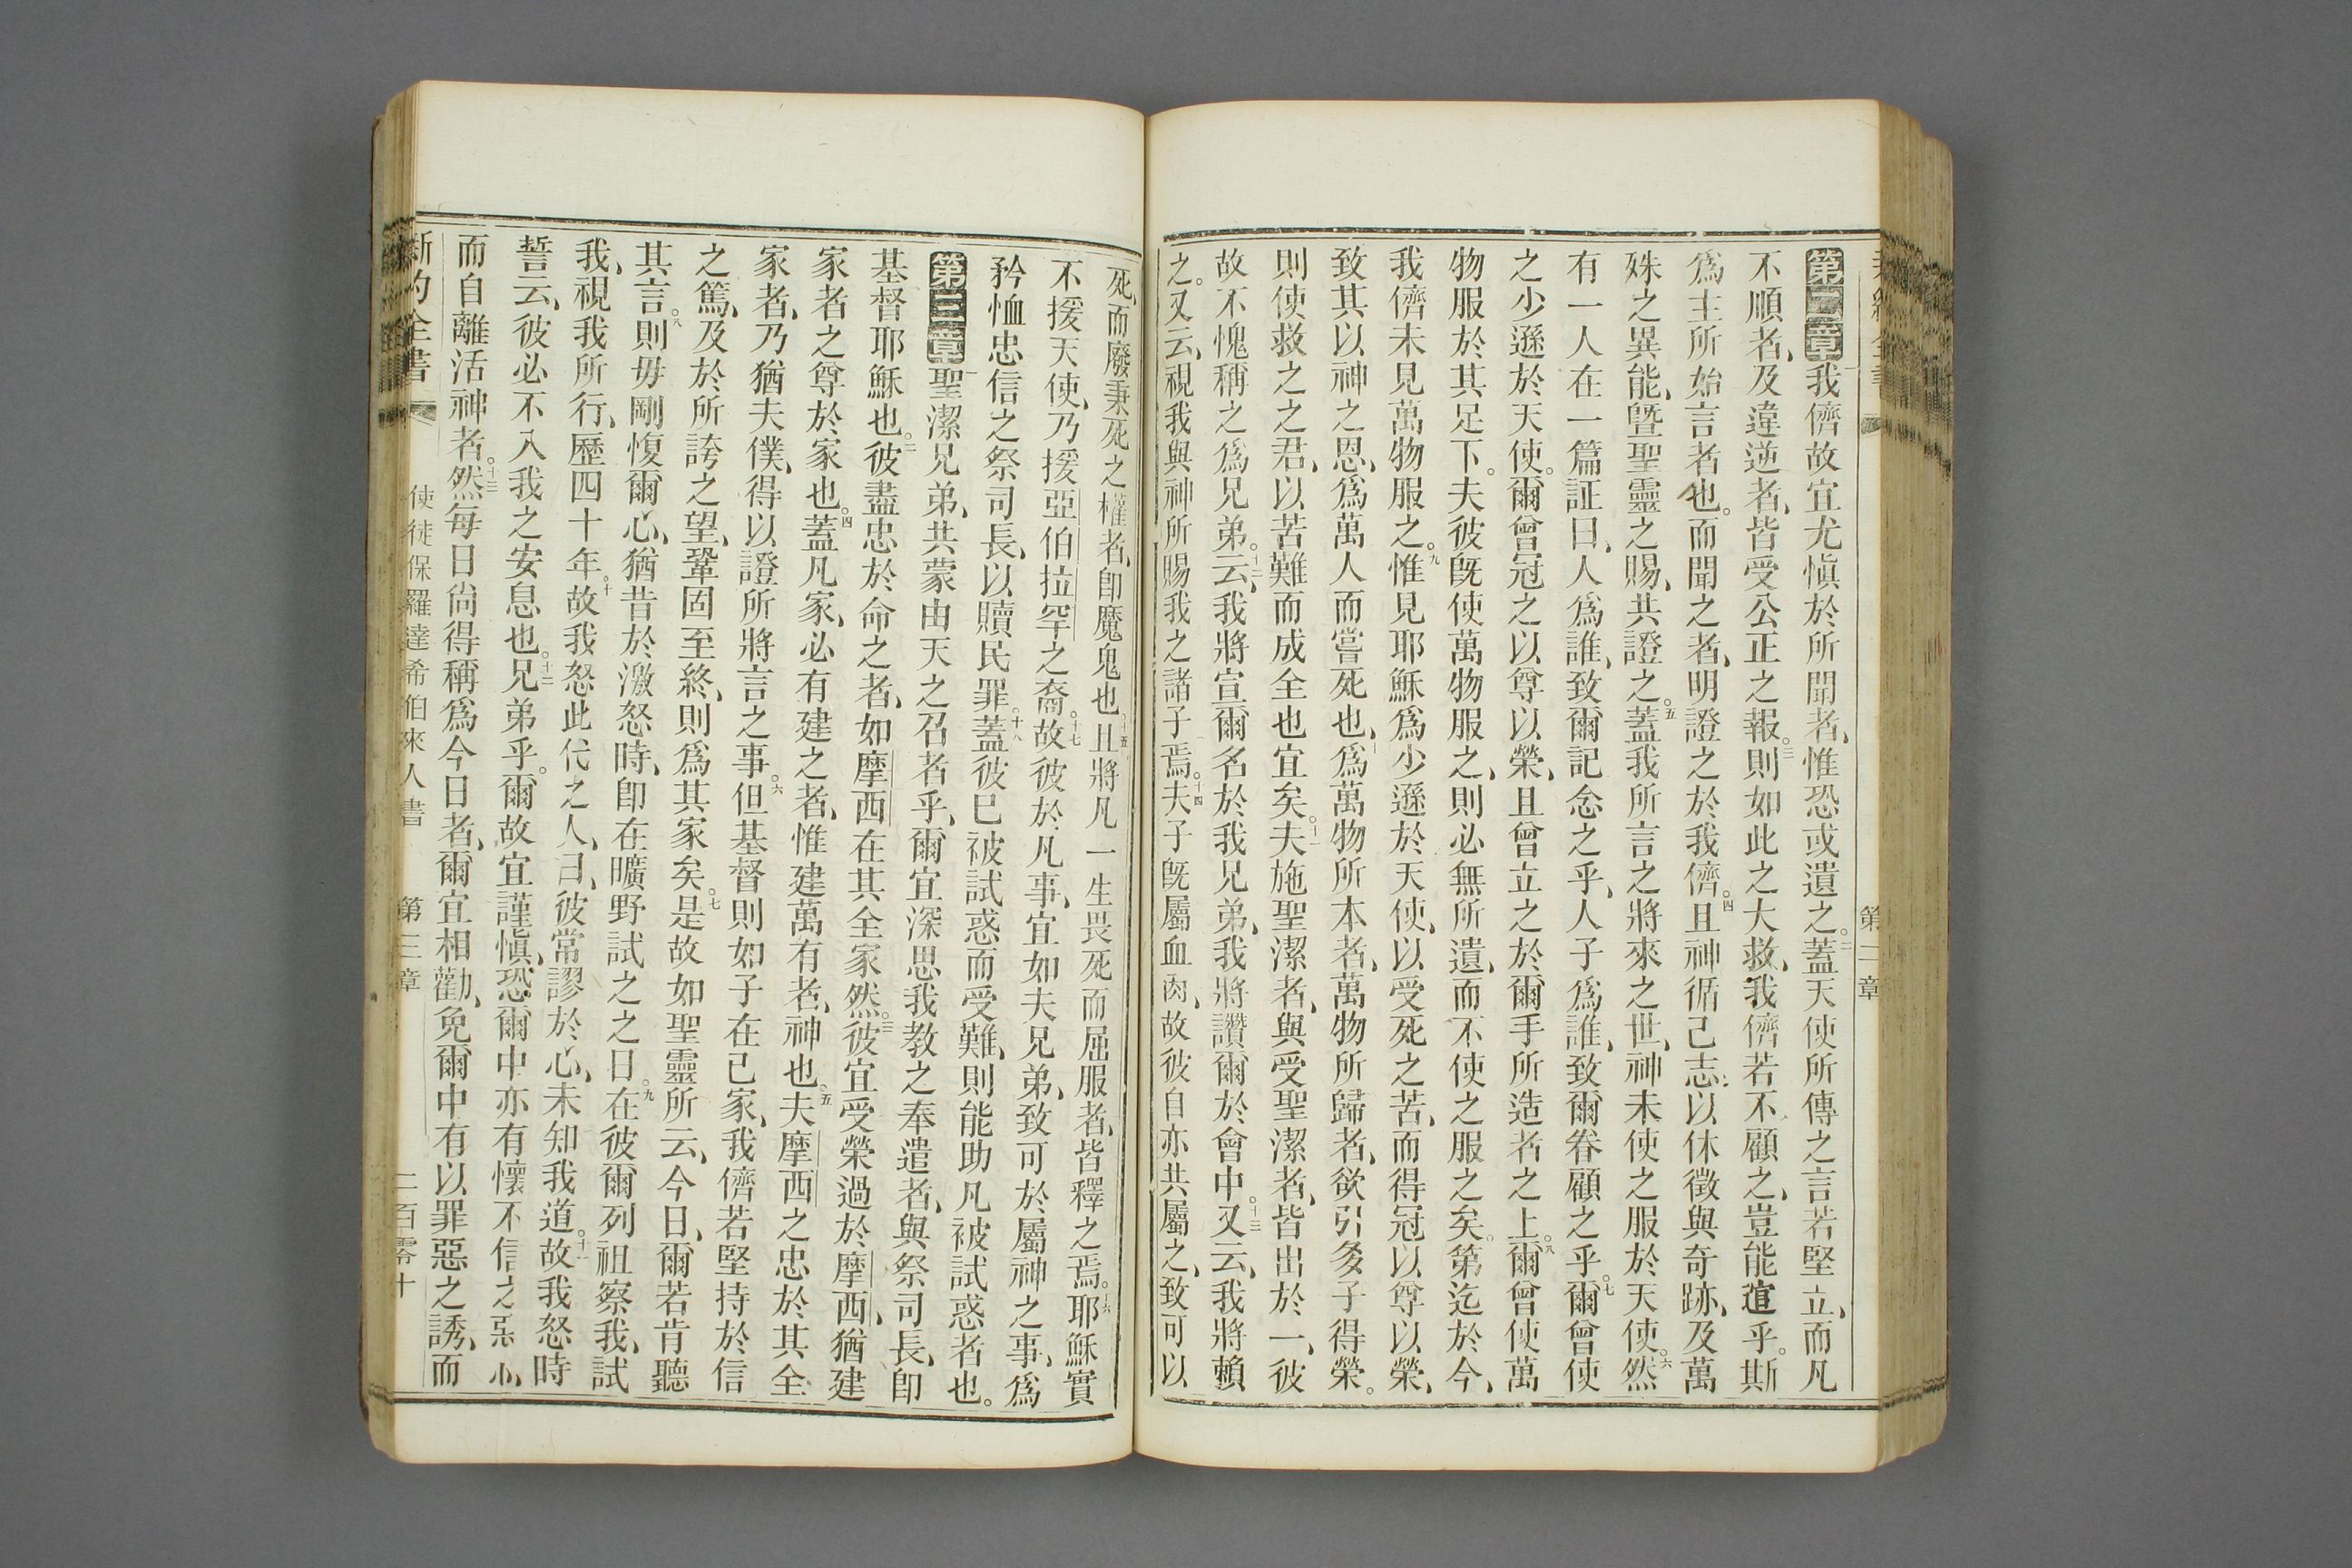 第二章
第二章一我儕故宜尤愼於所聞者、惟恐或遺之。二蓋天使所傳之言若堅立、而凡
不順者、及違逆者、皆受公正之報。三則如此之大救、我儕若不顧之、豈能逭乎。斯
爲主所始言者也。而聞之者、明證之於我儕。四且神循己志、以休徵與奇跡、及萬
殊之異能、曁聖靈之賜、共證之。五蓋我所言之將來之世、神未使之服於天使。六然
有一人在一篇証曰、人爲誰、致爾記念之乎、人子爲誰、致爾眷顧之乎。七爾曾使
之少遜於天使。爾曾冠之以尊以榮、且曾立之於爾手所造者之上。八爾曾使萬
物服於其足下。夫彼旣使萬物服之、則必無所遺、而不使之服之矣。第迄於今、
我儕未見萬物服之。九惟見耶穌爲少遜於天使、以受死之苦、而得冠以尊以榮、
致其以神之恩、爲萬人而嘗死也、十爲萬物所本者、萬物所歸者、欲引多子得榮。
則使救之之君、以苦難而成全也宜矣。十一夫施聖潔者、與受聖潔者、皆出於一、彼
故不愧稱之爲兄弟。十二云、我將宣爾名於我兄弟、我將讚爾於會中。十三又云、我將賴
之。又云、視我與神所賜我之諸子焉。十四夫子旣屬血肉、故彼自亦共屬之、致可以
死、而廢秉死之權者、卽魔鬼也。十五且將凡一生畏死而屈服者、皆釋之焉。十六耶穌實
不援天使、乃援亞伯拉罕之裔。十七故彼於凡事、宜如夫兄弟、致可於屬神之事、爲
矜恤忠信之祭司長、以贖民罪。十八蓋彼已被試惑而受難、則能助凡被試惑者也。
第三章一聖潔兄弟、共蒙由天之召者乎、爾宜深思我教之奉遣者、與祭司長、卽
基督耶穌也。二彼盡忠於命之者、如摩西在其全家然。三彼宜受榮過於摩西、猶建
家者之尊於家也。四蓋凡家、必有建之者、惟建萬有者、神也。五夫摩西之忠於其全
家者、乃猶夫僕、得以證所將言之事。六但基督則如子在己家、我儕若堅持於信
之篤、及於所誇之望、鞏固至終、則爲其家矣。七是故如聖靈所云、今日、爾若肯聽
其言。八則毋剛愎爾心、猶昔於激怒時、卽在曠野試之之日。九在彼爾列祖察我、試
我、視我所行、歷四十年。十故我怒此代之人、曰、彼常謬於心、未知我道。十一故我怒時
誓云、彼必不入我之安息也。十二兄弟乎。爾故宜謹愼、恐爾中亦有懷不信之惡心、
而自離活神者。十三然每日尙得稱爲今日者、爾宜相勸、免爾中有以罪惡之誘、而
新約全書 使徒保羅達希伯來人書 第三章 二百零十